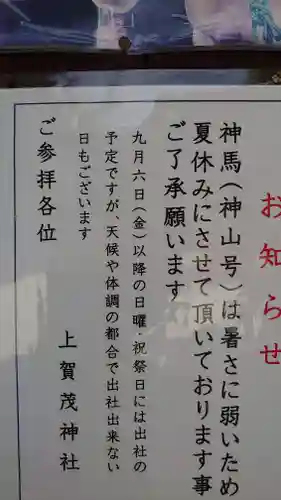 お知らせ
神馬(神山号)は暑さに弱いため
夏休みにさせて頂いております事
ご了承願います
九月六日(金)以降の日曜・祝祭日には出社の
予定ですが、天候や体調の都合で出社出来ない
日もございます
ご参拝各位
上賀茂神社